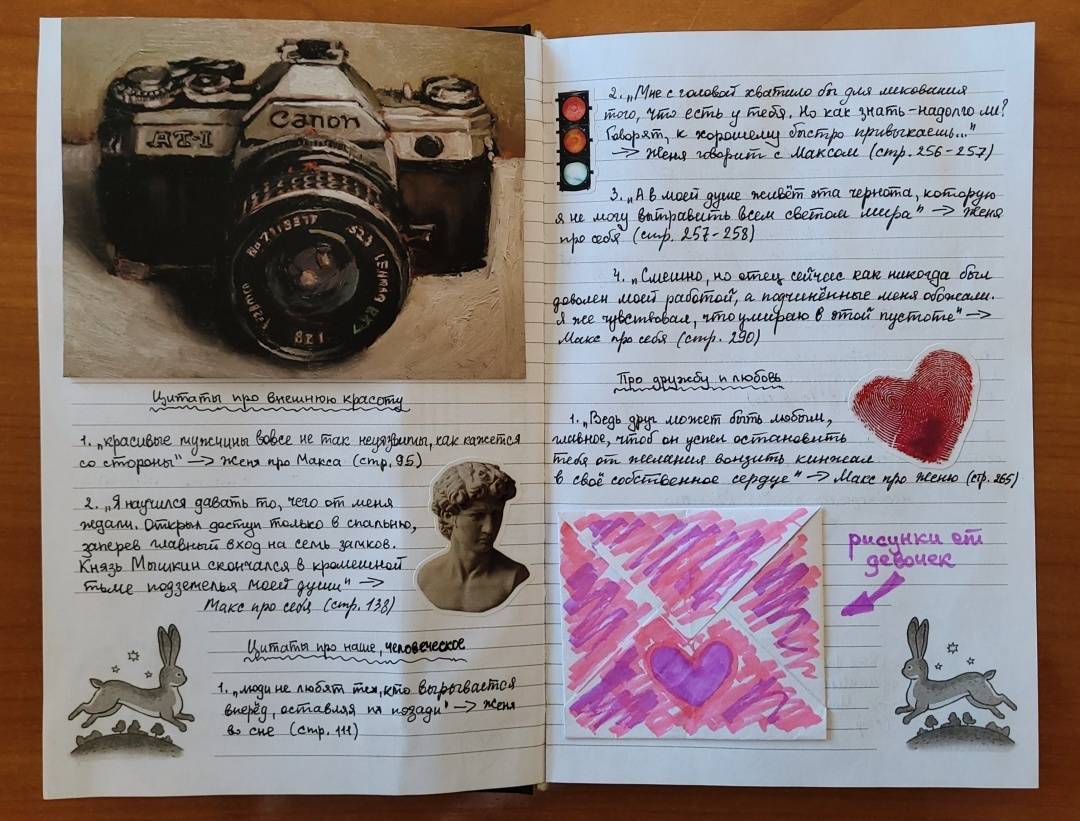 Canon
AT-1
Цитаты про внешнюю красоту
1. „красивые мужчины вовсе не так неуязвимы, как кажется
со стороны" → Женя про Макса (стр. 95)
2. „Я научился давать то, чего от меня
ждали. Открыл доступ только в спальню,
заперев главный вход на семь замков.
Князь Мышкин скончался в кромешной
тьме подземелья моей души" →
Макс про себя (стр. 138)
Цитаты про наше, человеческое
1. „люди не любят тех, кто вырывается
вперёд, оставляя их позади" → Женя
во сне (стр. 111)
2. „Мне с головой хватило бы для ликования
того, что есть у тебя. Но как знать - надолго ли?
Говорят, к хорошему быстро привыкаешь..."
→ Женя говорит с Максом (стр. 256-257)
3. „А в моей душе живёт эта чернота, которую
я не могу вытравить всем светом мира" → Женя
про себя (стр. 257-258)
4. „Смешно, но отец сейчас как никогда был
доволен моей работой, а подчинённые меня обожали.
Я же чувствовал, что умираю в этой пустоте" →
Макс про себя (стр. 290)
Про дружбу и любовь
1. „Ведь друг может быть любым,
главное, чтоб он успел остановить
тебя от желания вонзить кинжал
в своё собственное сердце" → Макс про Женю (стр. 265)
рисунки от
девочек